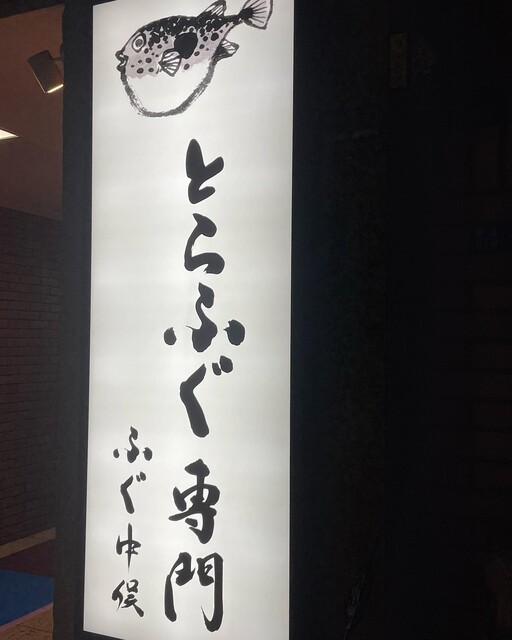 とらふぐ専門
ふぐ中俣